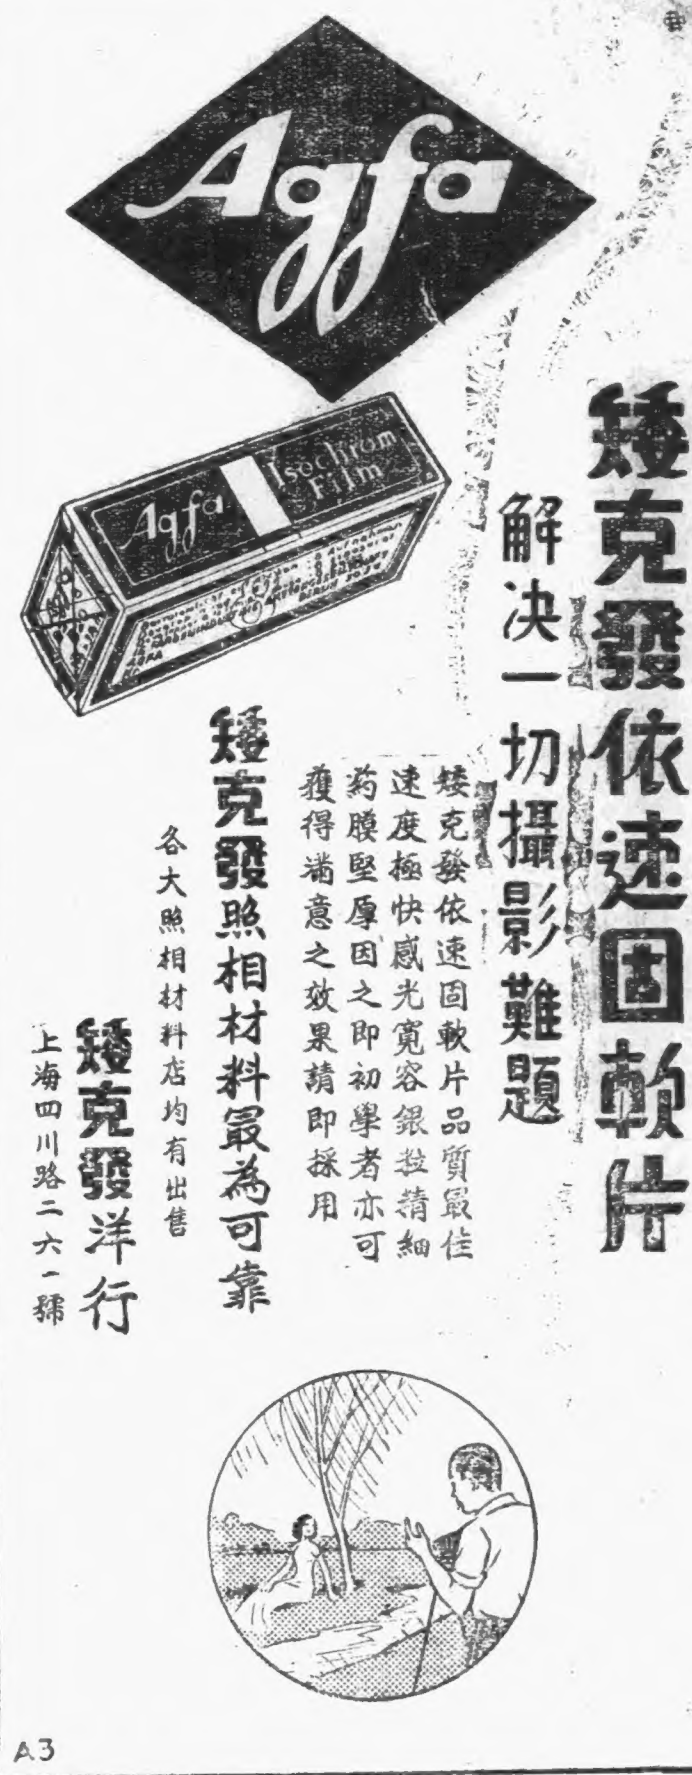 Agfa
Agfa
Isochrom
Film
矮克發依速固軟片
解决一切攝影難題
矮克發依速固軟片品質最佳
速度極快感光寬容銀粒精細
葯膜堅厚因之即初學者亦可
獲得滿意之效果請即採用
矮克發照相材料最為可靠
各大照相材料店均有出售
矮克發洋行
上海四川路二六一號
A3